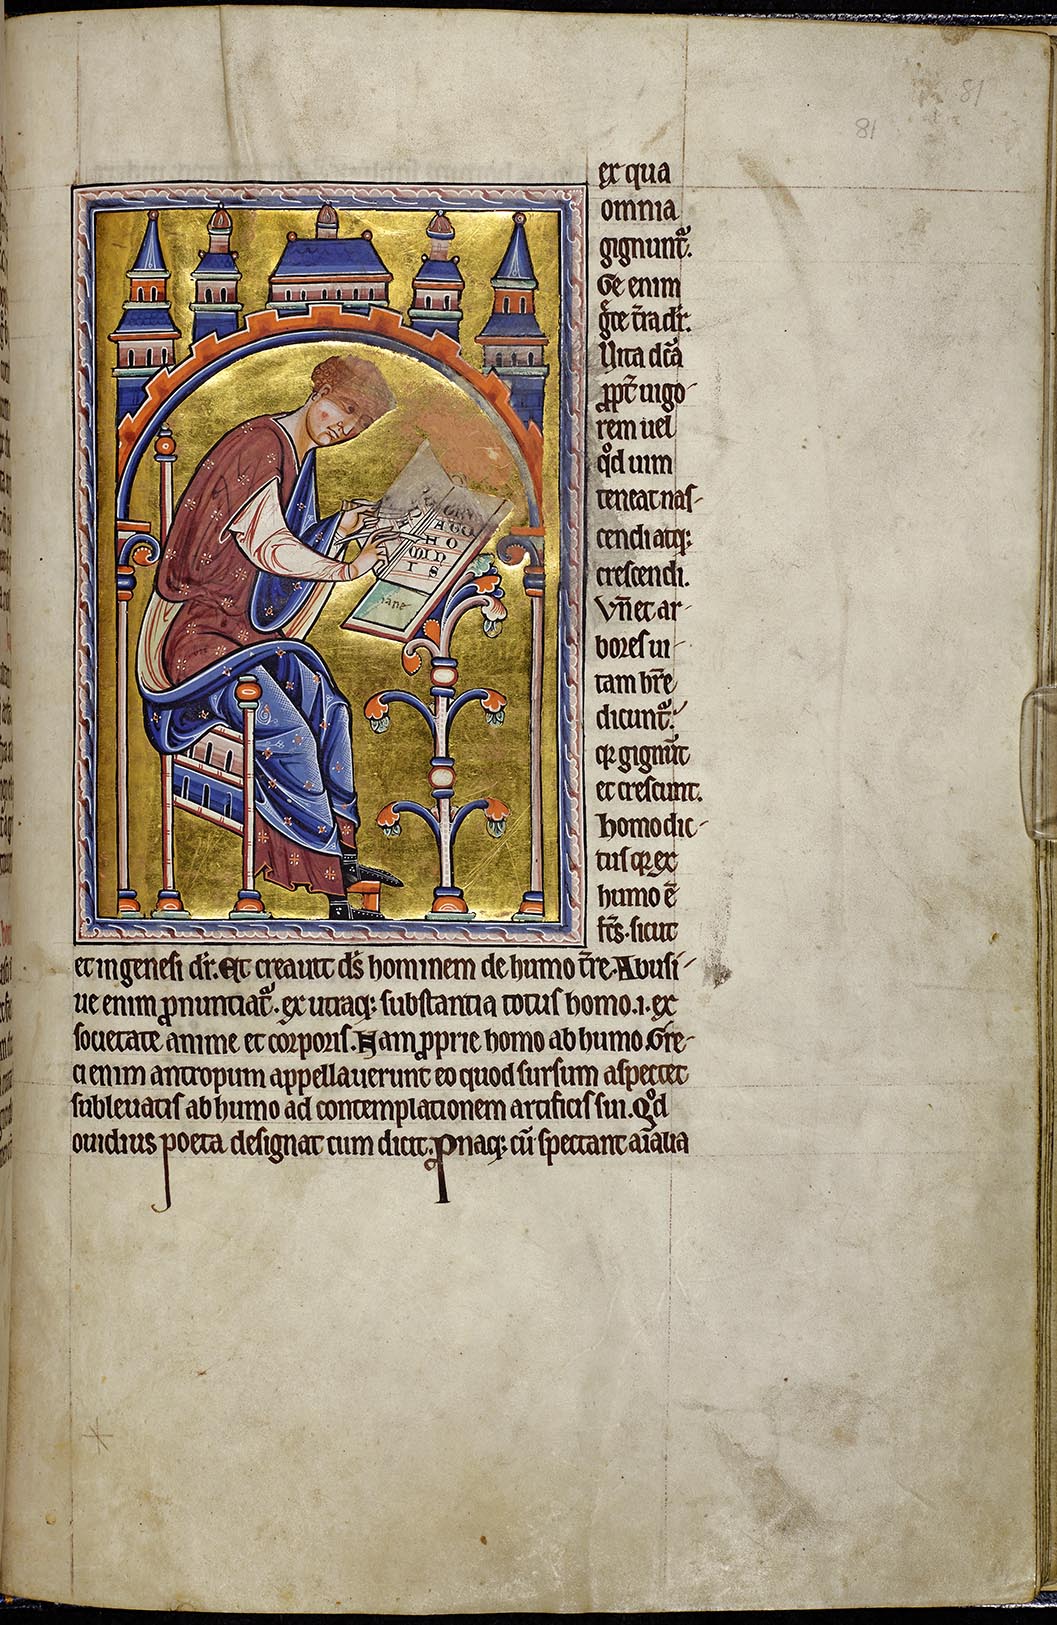 81
81
ex qua
omnia
gignunt᷑.
Ge enim
g̊ce t̄ra dr̄.
Vita dc̄a
ꝓpt̄ uigo-
rem uel
qͦd uim
teneat nas-
cendi atq;
crescendi.
Vn̄ et ar
bores ui-
tam br̄e
dicunt᷑.
qr gignūt
et crescunt.
Homo dic-
tus qr ex
humo ē
fc̄s. sicut
et in genesi dr̄. Et creauit ds̄ hominem de humo t̄re. Abusi-
ue enim ꝓnunciat᷑. ex utraq; substantia totus homo .i. ex
societate anime et corporis. Nam ꝓprie homo ab humo. Gre-
ci enim antropum appellauerunt eo quod sursum aspectet
subleuatis ab humo ad contemplationem artificis sui. Qͦd
ouidius poeta designat cum dicit. Pnaq; cū spectant aīalia
HO
MIN
IS